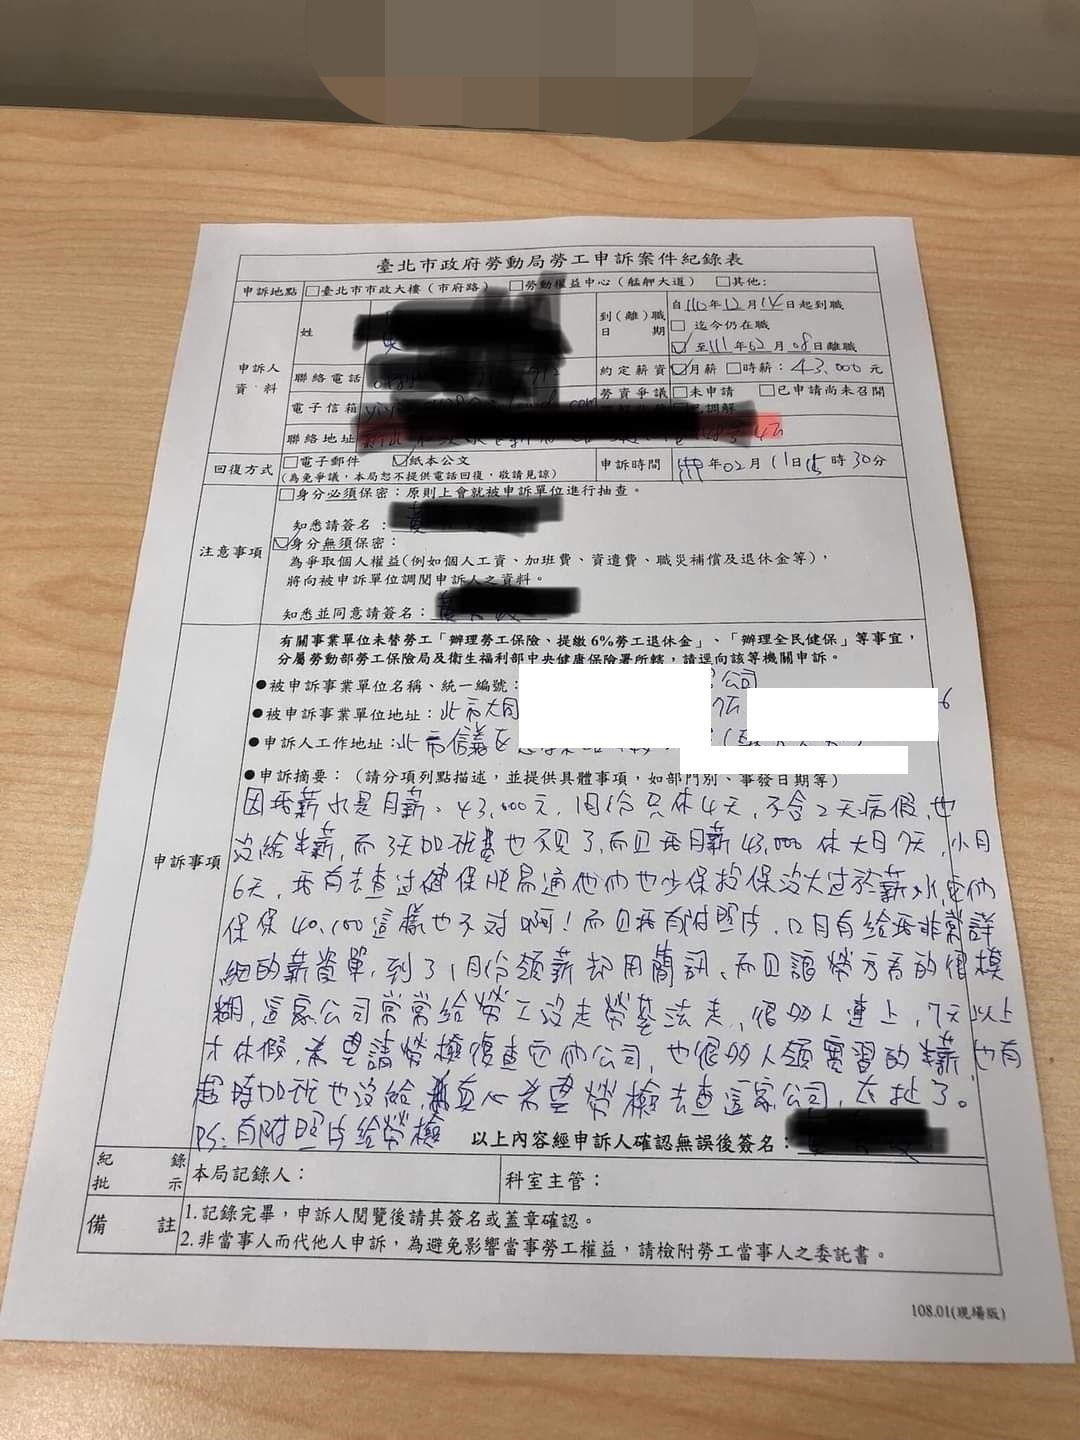 臺北市政府勞動局勞工申訴案件紀錄表
申訴地點 □臺北市市政大樓（市府路） □勞動權益中心（艋舺大道） □其他：
申訴人資料
姓
到（離）職日期
自110年12月14日起到職
□ 迄今仍在職
☑ 至111年02月08日離職
聯絡電話
約定薪資 ☑月薪 □時薪：43,000元
電子信箱
勞資爭議 □未申請 □已申請尚未召開
□已調解
聯絡地址
回復方式 □電子郵件 ☑紙本公文
（為免爭議，本局恕不提供電話回復，敬請見諒）
申訴時間 年02月11日15時30分
注意事項
□身分必須保密：原則上會就被申訴單位進行抽查。
知悉請簽名：
☑身分無須保密：
為爭取個人權益(例如個人工資、加班費、資遣費、職災補償及退休金等)，
將向被申訴單位調閱申訴人之資料。
知悉並同意請簽名：
申訴事項
有關事業單位未替勞工「辦理勞工保險、提繳6%勞工退休金」、「辦理全民健保」等事宜，
分屬勞動部勞工保險局及衛生福利部中央健康保險署所轄，請逕向該等機關申訴。
●被申訴事業單位名稱、統一編號： 公司
●被申訴事業單位地址：北市大同
●申訴人工作地址：北市信義區
●申訴摘要：（請分項列點描述，並提供具體事項，如部門別、事發日期等）
因我薪水是月薪。43,000元，1月份只休4天，不含2天病假，也
沒給半薪，而3天加班費也不見了，而且我月薪43,000休大月7天，小月
6天，我有去查過健保快易通他們也少保投保沒大過於薪水，他們
保保40,100這樣也不对啊！而且我有附照片，12月有給我非常詳
細的薪資單，到了1月份領薪却用簡訊，而且讓勞方看的很模
糊，這家公司常常給勞工沒走勞基法走，很多人連上，7天以上
才休假，希望請勞檢復查它們公司，也很多人領實習的半薪也有
超時加班也沒給，真心希望勞檢去查這家公司，太扯了。
PS：有附照片給勞檢
以上內容經申訴人確認無誤後簽名：
紀錄批示 本局記錄人： 科室主管：
備註
1.記錄完畢，申訴人閱覽後請其簽名或蓋章確認。
2.非當事人而代他人申訴，為避免影響當事勞工權益，請檢附勞工當事人之委託書。
108.01(現場版)